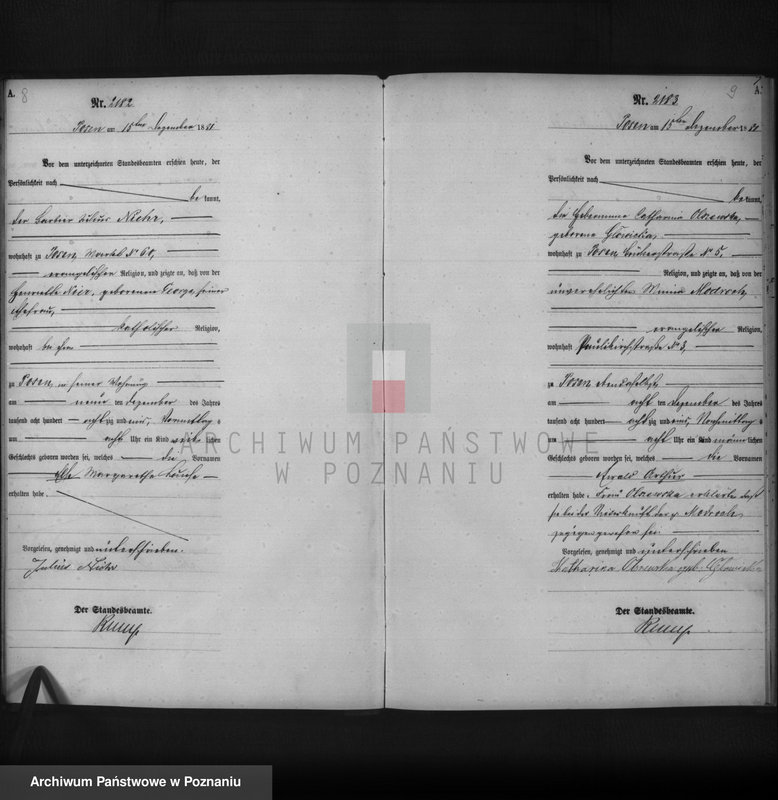 A. 8
Nr. 2182.
Posen am 15ten Dezember 1881
Vor dem unterzeichneten Standesbeamten erschien heute, der
Persönlichkeit nach
be kannt,
der Barbier Julius Niehr,
wohnhaft zu Posen, Markt No 60,
evangelischer Religion, und zeigte an, daß von der
Henriette Niehr, geborenen George, seiner
Ehefrau,
katholischer Religion,
wohnhaft bei ihm
zu Posen in seiner Wohnung
am neun ten Dezember des Jahres
tausend acht hundert achtzig und eins, Vormittag s
um acht Uhr ein Kind weib lichen
Geschlechts geboren worden sei, welches die Vornamen
Margarethe
erhalten habe.
Vorgelesen, genehmigt und unterschrieben.
Julius Niehr
Der Standesbeamte.
9 A.
Nr. 2183.
Posen am 15ten Dezember 1881
Vor dem unterzeichneten Standesbeamten erschien heute, der
Persönlichkeit nach
be kannt,
die Hebamme Catharina
geborene
wohnhaft zu Posen No 5,
Religion, und zeigte an, daß von der
unverehelichten Minna Modrock
evangelischer Religion,
wohnhaft Paulikirchstraße No 3,
zu Posen ebendaselbst
am acht ten Dezember des Jahres
tausend acht hundert achtzig und eins, Nachmittag s
um acht Uhr ein Kind männ lichen
Geschlechts geboren worden sei, welches die Vornamen
Ewald Arthur
erhalten habe. Frau erklärte, daß
sie bei der Niederkunft der p. Modrock
zugegen gewesen sei.
Vorgelesen, genehmigt und unterschrieben
Katharina geb.
Der Standesbeamte.
ARCHIWUM PAŃSTWOWE
W POZNANIU
Archiwum Państwowe w Poznaniu